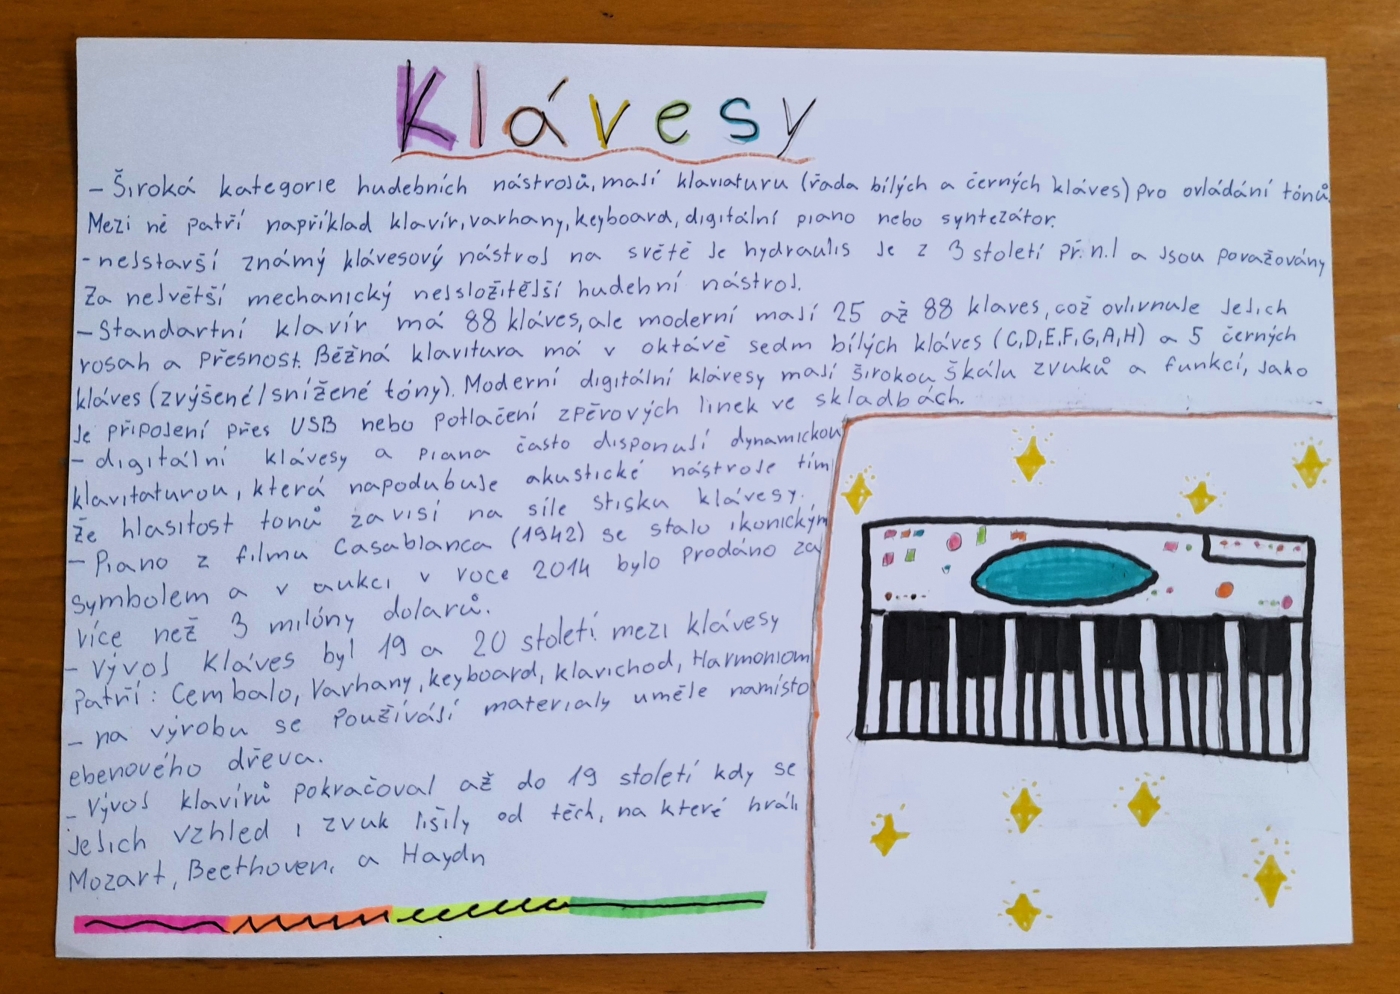 Klávesy
- Široká kategorie hudebních nástrojů, mají klaviaturu (řada bílých a černých kláves) pro ovládání tónů.
Mezi ně patří například klavír, varhany, keyboard, digitální piano nebo syntezátor.
- nejstarší známý klávesový nástroj na světě je hydraulis je z 3 století př. n.l a jsou považovány
Za největší mechanický nejsložitější hudební nástroj.
- Standartní klavír má 88 kláves, ale moderní mají 25 až 88 klaves, což ovlivnuje jejich
rosah a přesnost. Běžná klavitura má v oktávě sedm bílých kláves (C,D,E,F,G,A,H) a 5 černých
kláves (zvýšené/snížené tóny). Moderní digitální klávesy mají širokou škálu zvuků a funkcí, jako
je připojení přes USB nebo potlačení zpěvových linek ve skladbách.
- digitální klávesy a piana často disponují dynamickou
klavitaturou, která napodubuje akustické nástroje tím
že hlasitost tonů zavisí na síle stisku klávesy.
- Piano z filmu Casablanca (1942) se stalo ikonickým
symbolem a v aukci v roce 2014 bylo prodáno za
více než 3 milóny dolarů.
- Vývoj kláves byl 19 a 20 století. mezi klávesy
Patří: Cembalo, Varhany, keyboard, klavichod, Harmoniom
- na výrobu se Používájí materialy uměle namísto
ebenového dřeva.
- Vývoj klavírů pokračoval až do 19 století kdy se
jejich vzhled i zvuk lišily od těch, na které hráli
Mozart, Beethoven, a Haydn